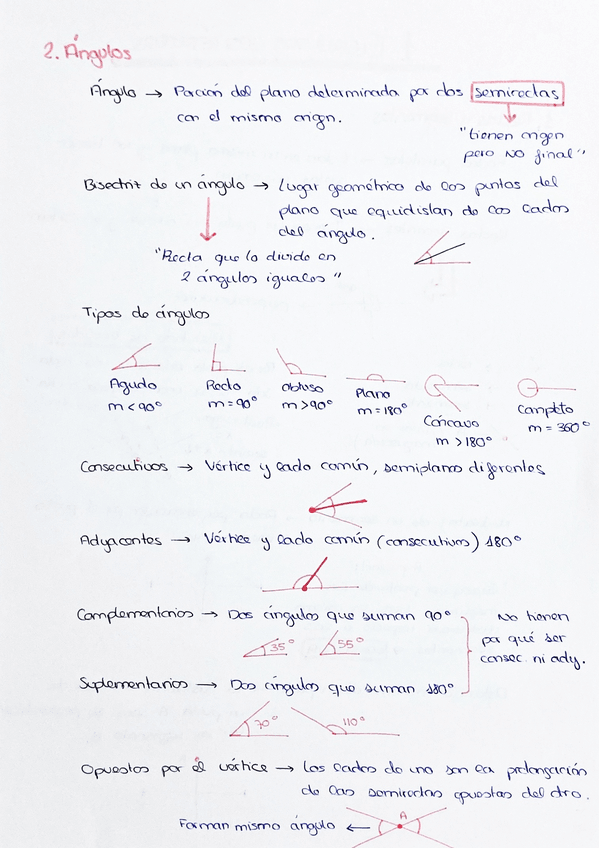 2. Ángulos
Ángulo → Porción del plano determinada por dos semirrectas
con el mismo origen.
"tienen origen
pero NO final"
Bisectriz de un ángulo → Lugar geométrico de los puntos del
plano que equidistan de los lados
del ángulo.
"Recta que lo divide en
2 ángulos iguales"
Tipos de ángulos
Agudo
m < 90°
Recto
m = 90°
obtuso
m > 90°
Plano
m = 180°
Cóncavo
m > 180°
Completo
m = 360°
Consecutivos → Vértice y lado común, semiplanos diferentes
Adyacentes → Vértice y lado común (consecutivos) 180°
Complementarios → Dos ángulos que suman 90°
35° 55°
No tienen
por qué ser
consec. ni ady.
Suplementarios → Dos ángulos que suman 180°
70° 110°
Opuestos por el vértice → Los lados de uno son la prolongación
de las semirrectas opuestas del otro.
Forman mismo ángulo ← A